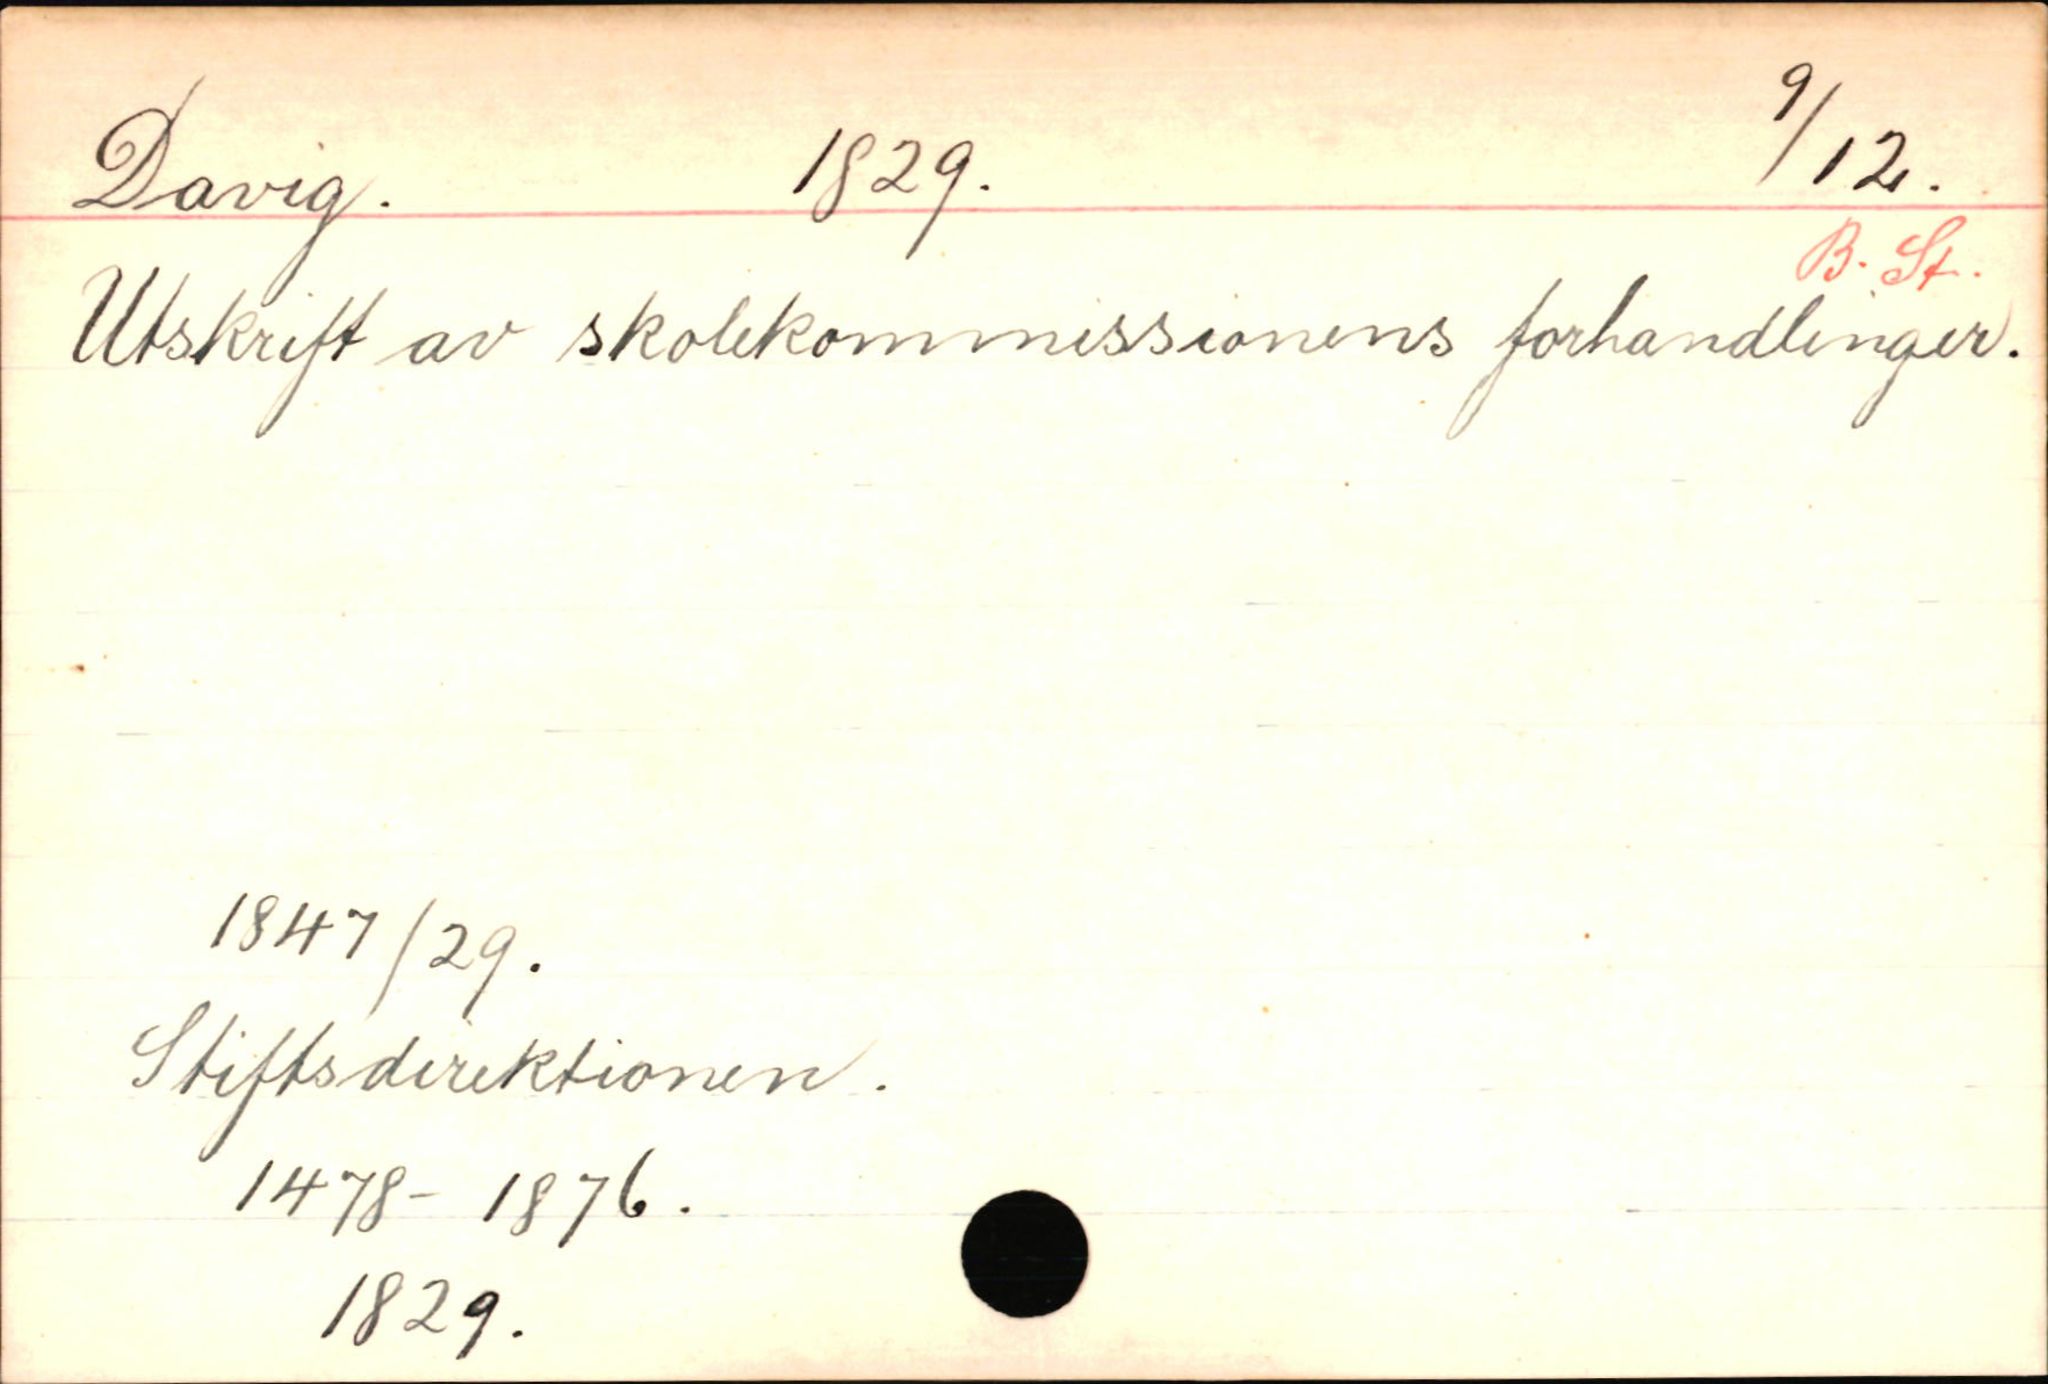 Davig. 1829. 9/12.
B. St.
Utskrift av skolekommissionens forhandlinger.
1847/29.
Stiftsdirektionen.
1478- 1876.
1829.